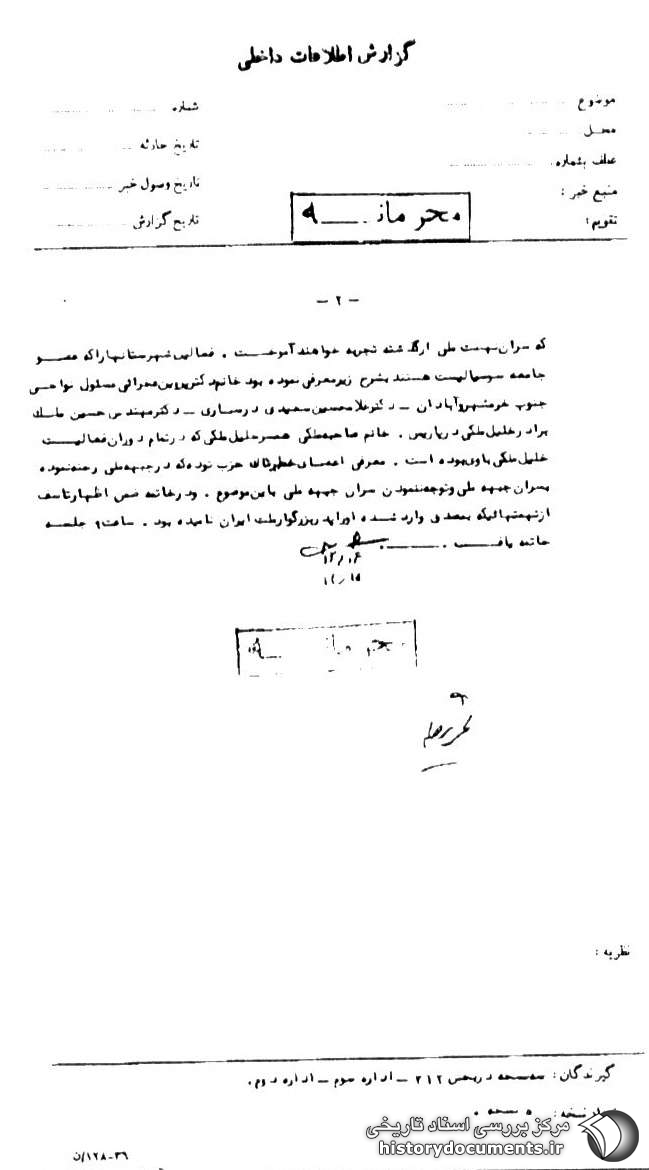 گزارش اطلاعات داخلی
موضوع
شماره
محل
تاریخ حادثه
عطف بشماره
تاریخ وصول خبر
منبع خبر :
تقویم:
تاریخ گزارش
محرمانه
- ۲ -
که سران نهضت ملی ازگذشته تجربه خواهند آموخت . فعالین شهرستانها را که عضو
جامعه سوسیالیست هستند بشرح زیر معرفی نموده بود خانم دکتر پروین مسئول نواحی
جنوب خرمشهر و آبادان - دکتر غلامحسین سعیدی در ساری - دکتر مهندس حسین ملک
برادر خلیل ملکی در پاریس . خانم صاحبه ملکی همسر خلیل ملکی که در تمام دوران فعالیت
خلیل ملکی با وی بوده است . معرفی اعضای خطرناک حزب توده که در جبهه ملی رخنه نموده
بسران جبهه ملی و توجه ننمودن سران جبهه ملی باین موضوع . و در خاتمه ضمن اظهار تاسف
از تهمتهائیکه بمصدق وارد شده او را پدر بزرگوار ملت ایران نامیده بود . ساعت ۹ جلسه
خاتمه یافت .
محرمانه
نظریه :
گیرندگان: سه نسخه در بخش ۲۱۲ - اداره سوم - اداره دوم .
نسخه : ۵ نسخه .
۳۶-۱۲۸/ن
مرکز بررسی اسناد تاریخی
historydocuments.ir